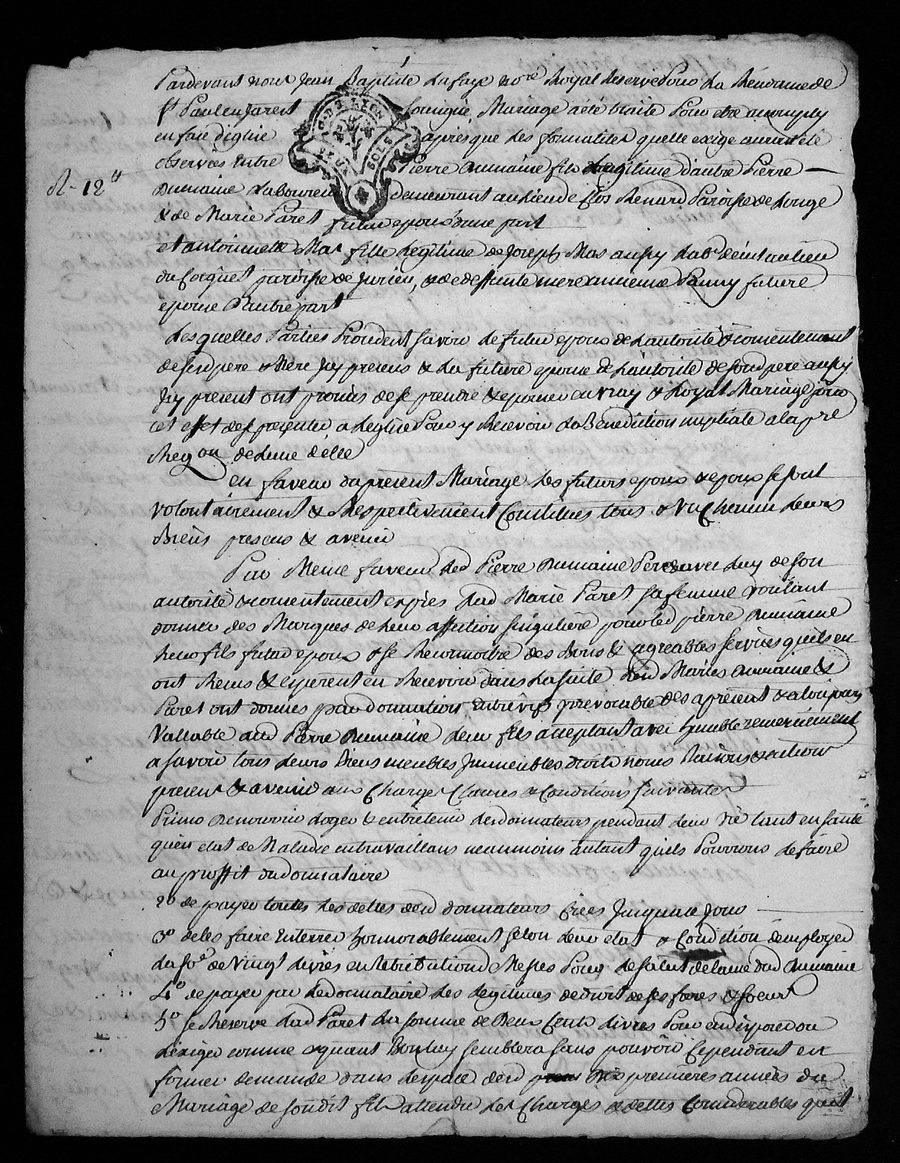 Pardevant nous Jean Baptiste Lafaye no.re Royal Reservé Pour la Résidance de
St Paul en Jarest Soussigné, Mariage a été traité Pour etre accomply
en face d'eglise apres que les formalités quelle exige auront été
observés Entre Pierre Dumaine fils Legitime d'autre Pierre
R. 12 tt
Dumaine Laboureur demeurant au lieu de Clos Renard Paroisse de
& de Marie Paret futur epoux d'une part
et antoinette Mas fille Legitime de Joseph Mas aussy Lab.r audit lieu
du paroisse de Jurieu, & de deffunte future
epouse D'autre part
Lesquelles Parties Procedent savoir le futur epoux de L'autorité & consentement
de ses pere & Mere Icy presens & la future epouse de L'autorité de son pere aussy
Icy present ont promis de se prendre & epouser en vray & Loyal Mariage pour
cet effet de se presenter a L'eglise Pour y Recevoir la Benediction nuptiale a la pre
Reqon de L'une d'elle
en faveur du present Mariage les futurs epoux & epouse se sont
volontairement & Respectivement Constitués tous & Un Chacun leurs
Biens presens & avenir
Par Meme faveur led Pierre Dumaine Pere avec Luy de son
autorité & consentement exprès lad Marie Paret sa femme voulant
donner des Marques de Leur affection singuliere pour led pierre Dumaine
Leur fils futur epoux & se Reconnoitre des bons & agreables services quils en
ont Recus & esperent en Recevoir dans La suite led Mariés Dumaine &
Paret ont donnés par donnation Entrevifs Irrevocable des apresent & a toujours
Vallable aud Pierre Dumaine Leur fils acceptant avec humble remerciement
a savoir tous Leurs Biens meubles Immeubles droits noms Raisons & actions
present & avenir aux Charges Clauses & Conditions suivantes
Primo De nourrir Loger & entretenir Les donnateurs pendant Leur Vie tant en santé
qu'en etat de Maladie en travaillans neanmoins autant quils Pourrons de faire
au proffit du donnataire
2o de payer toutes les dettes des d donnateurs Crées Jusqu'a ce Jour
3o de les faire Enterrer honnorablement selon Leur etat & Condition d'employer
La So.e de Vingt Livres en Retribution de Messes Pour le salut de L'ame dud Dumaine
4o de payer par le donnataire les Legitimes de droit de ses freres & soeurs
5o se Reserve lad Paret La somme de Deux Cents Livres Pour en disposer ou
L'exiger comme & quant Bon luy semblera sans pouvoir Cependant en
former demande dans L'espace des premieres années du
Mariage de son dit fils attendu les Charges & dettes Considerables quil